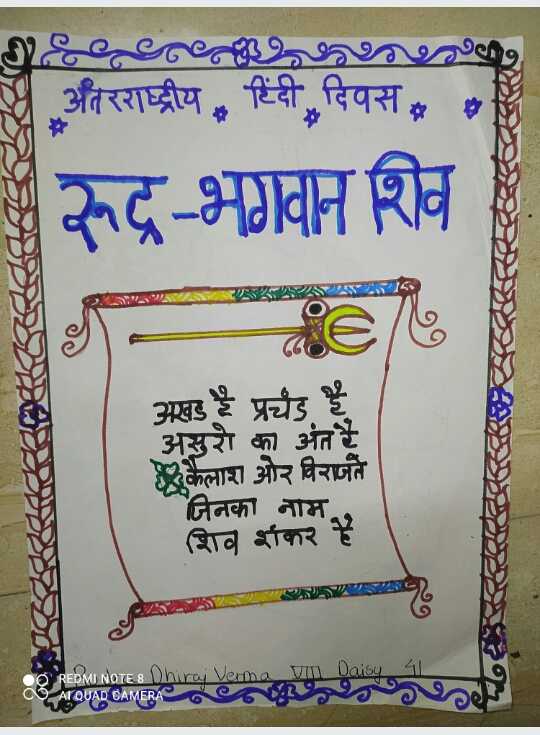 अंतरराष्ट्रीय हिंदी दिवस
रूद्र -भगवान शिव
अखड है प्रचंड है
असुरो का अंत है
कैलाश ओर विराजते
जिनका नाम
शिव शंकर है
Dhiraj Verma VIII Daisy 41
REDMI NOTE 8
AI QUAD CAMERA